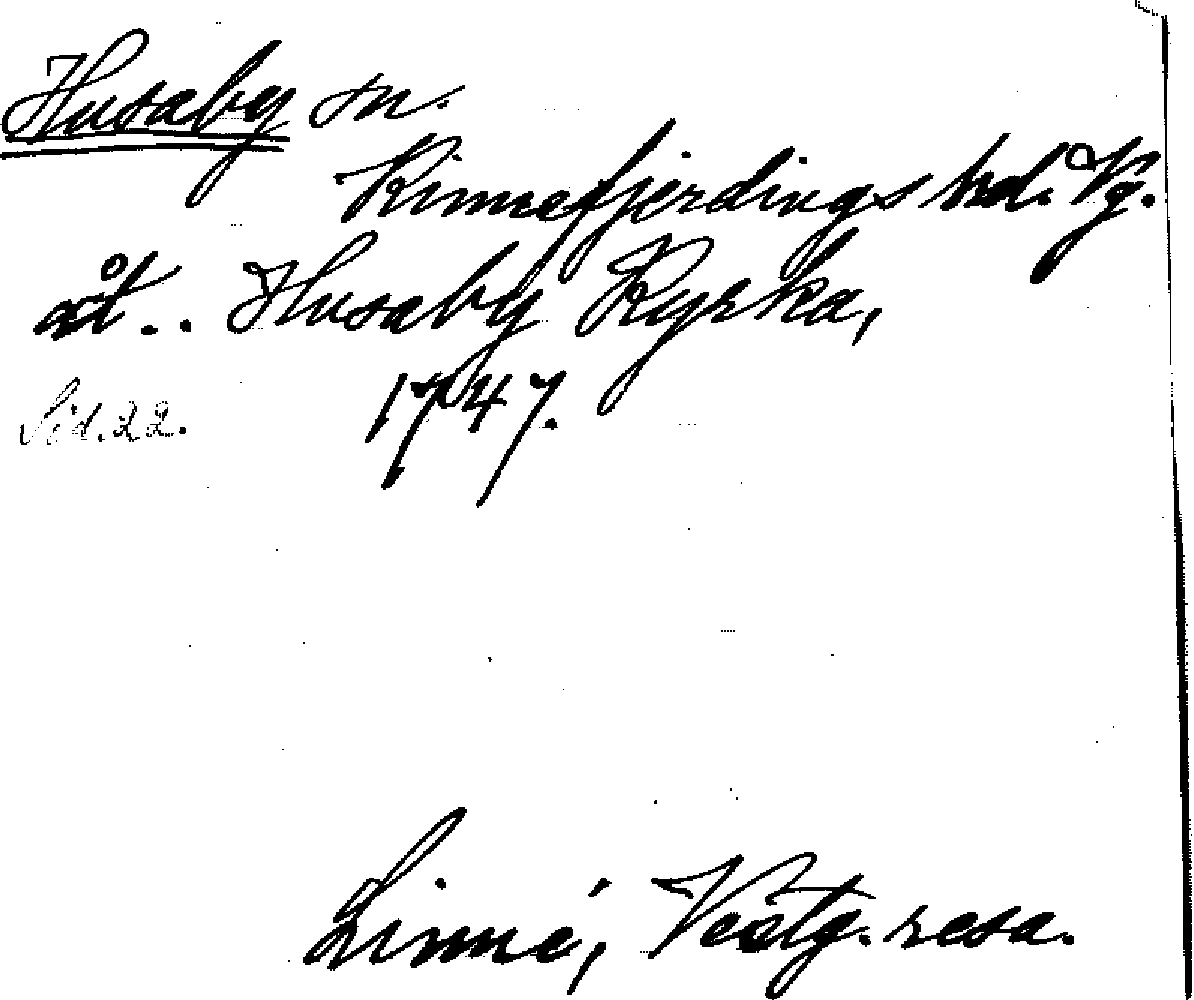 Husaby sn.
Kinnefjerdings hd. Vg.
åt.. Husaby Kyrka,
Sid. 22. 1747.
Linné, Vestg. resa.